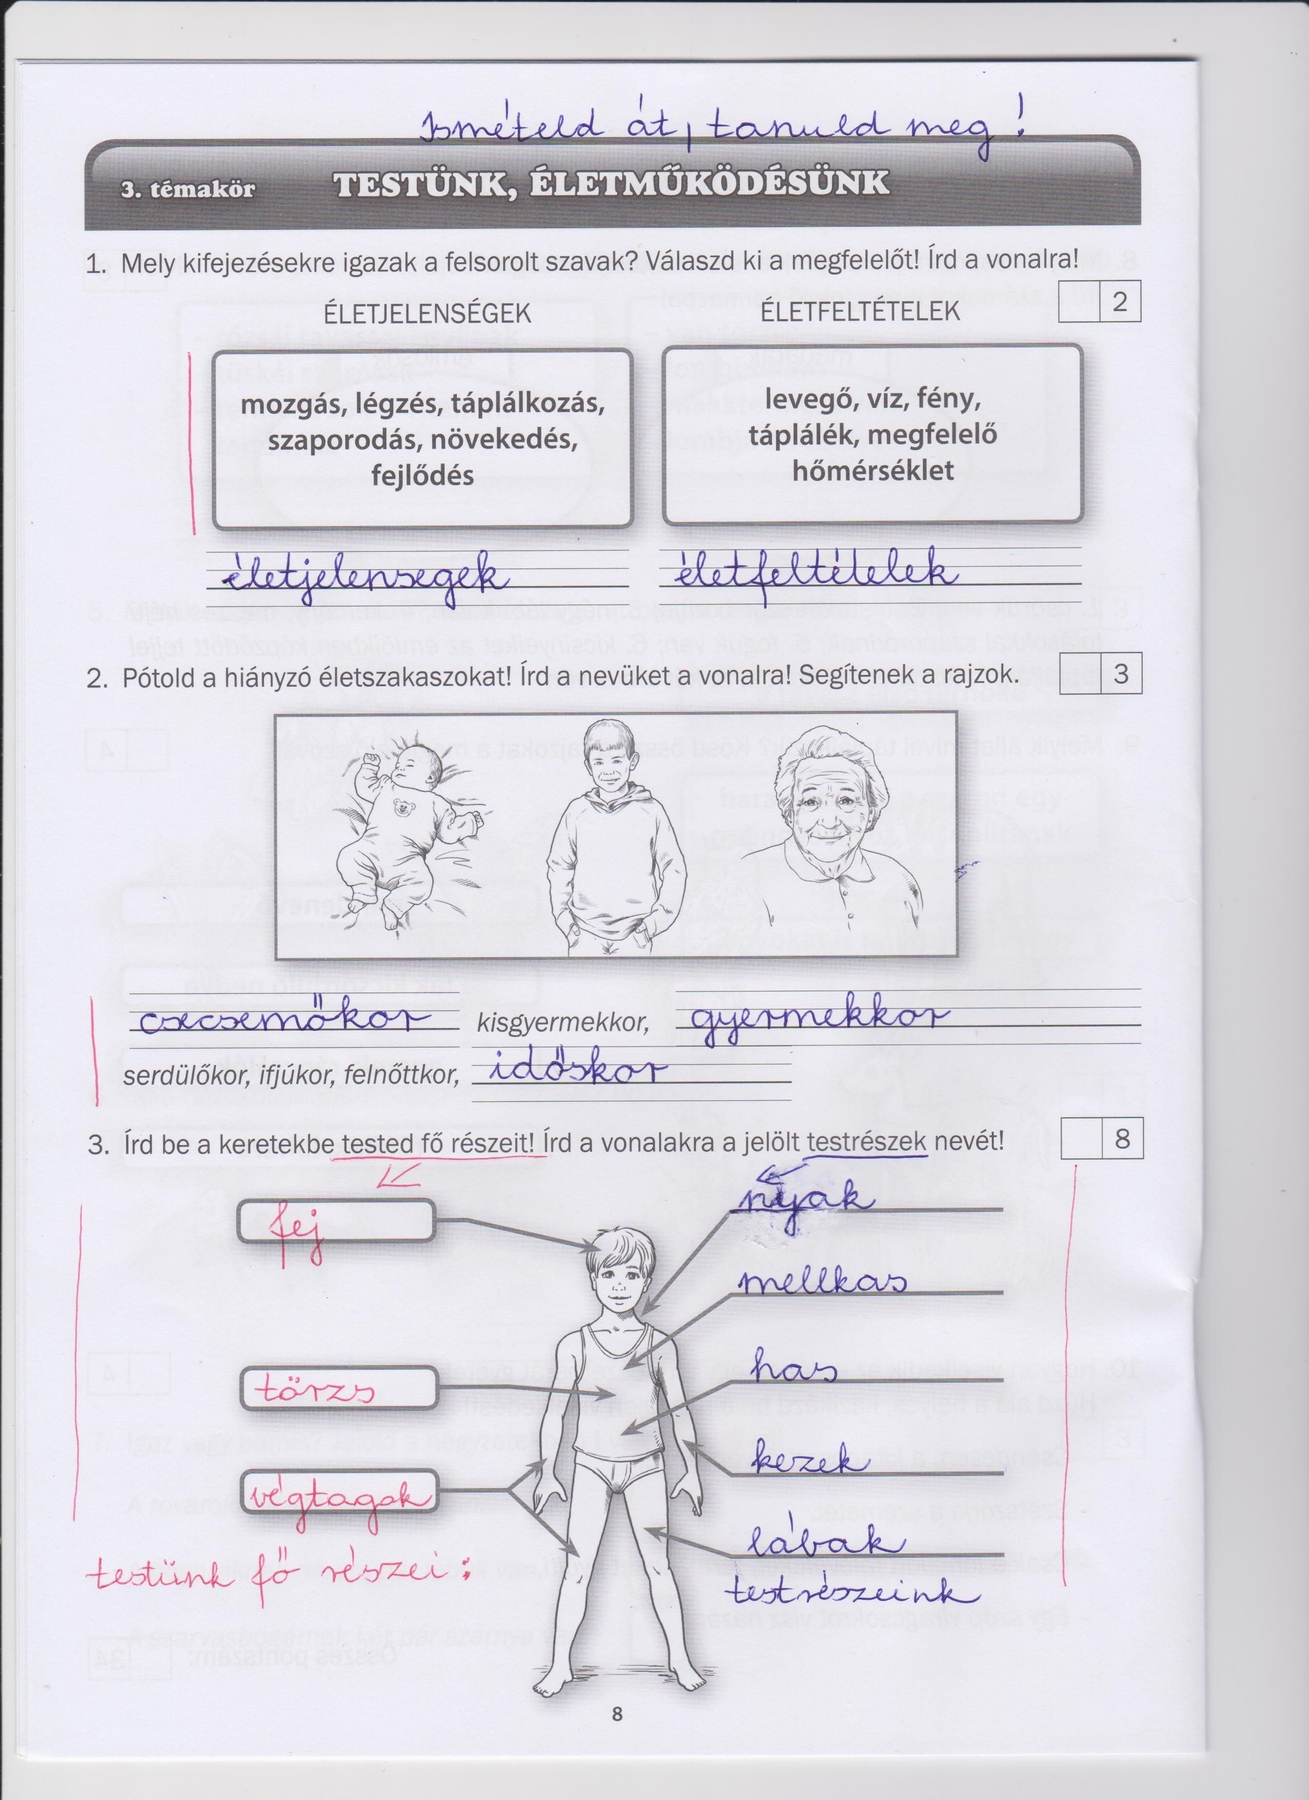 Ismételd át, tanuld meg!
3. témakör TESTÜNK, ÉLETMŰKÖDÉSÜNK
1. Mely kifejezésekre igazak a felsorolt szavak? Válaszd ki a megfelelőt! Írd a vonalra!
ÉLETJELENSÉGEK ÉLETFELTÉTELEK 2
mozgás, légzés, táplálkozás,
szaporodás, növekedés,
fejlődés
levegő, víz, fény,
táplálék, megfelelő
hőmérséklet
életjelenségek életfeltételek
2. Pótold a hiányzó életszakaszokat! Írd a nevüket a vonalra! Segítenek a rajzok. 3
csecsemőkor kisgyermekkor, gyermekkor
serdülőkor, ifjúkor, felnőttkor, időskor
3. Írd be a keretekbe tested fő részeit! Írd a vonalakra a jelölt testrészek nevét! 8
fej
törzs
végtagok
testünk fő részei:
nyak
mellkas
has
kezek
lábak
testrészeink
8